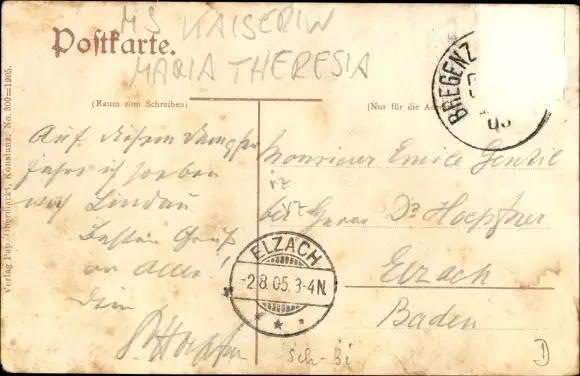 MS KAISERIN
MARIA THERESIA
Postkarte.
(Raum zum Schreiben)
(Nur für die
BREGENZ
05
Auf diesem Dampfer
fahre ich soeben
nach Lindau
Besten Gruß
an alle!
Dein
Monsieur Emile
bei Herrn Dr Hoepfner
Elzach
Baden
ELZACH
-2.8.05.3-4N.
Sch-Bi
Konstanz, No. 300=1905.